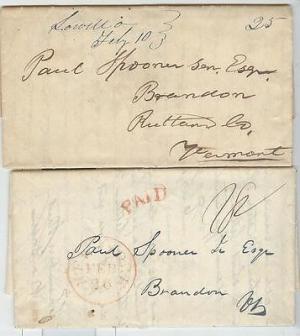 Lowell
Feby 10
25
Paul Spooner Sen. Esqr
Brandon
Rutland Co.
Vermont
PAID
FEB
26
Paul Spooner Jr Esqr
Brandon Vt